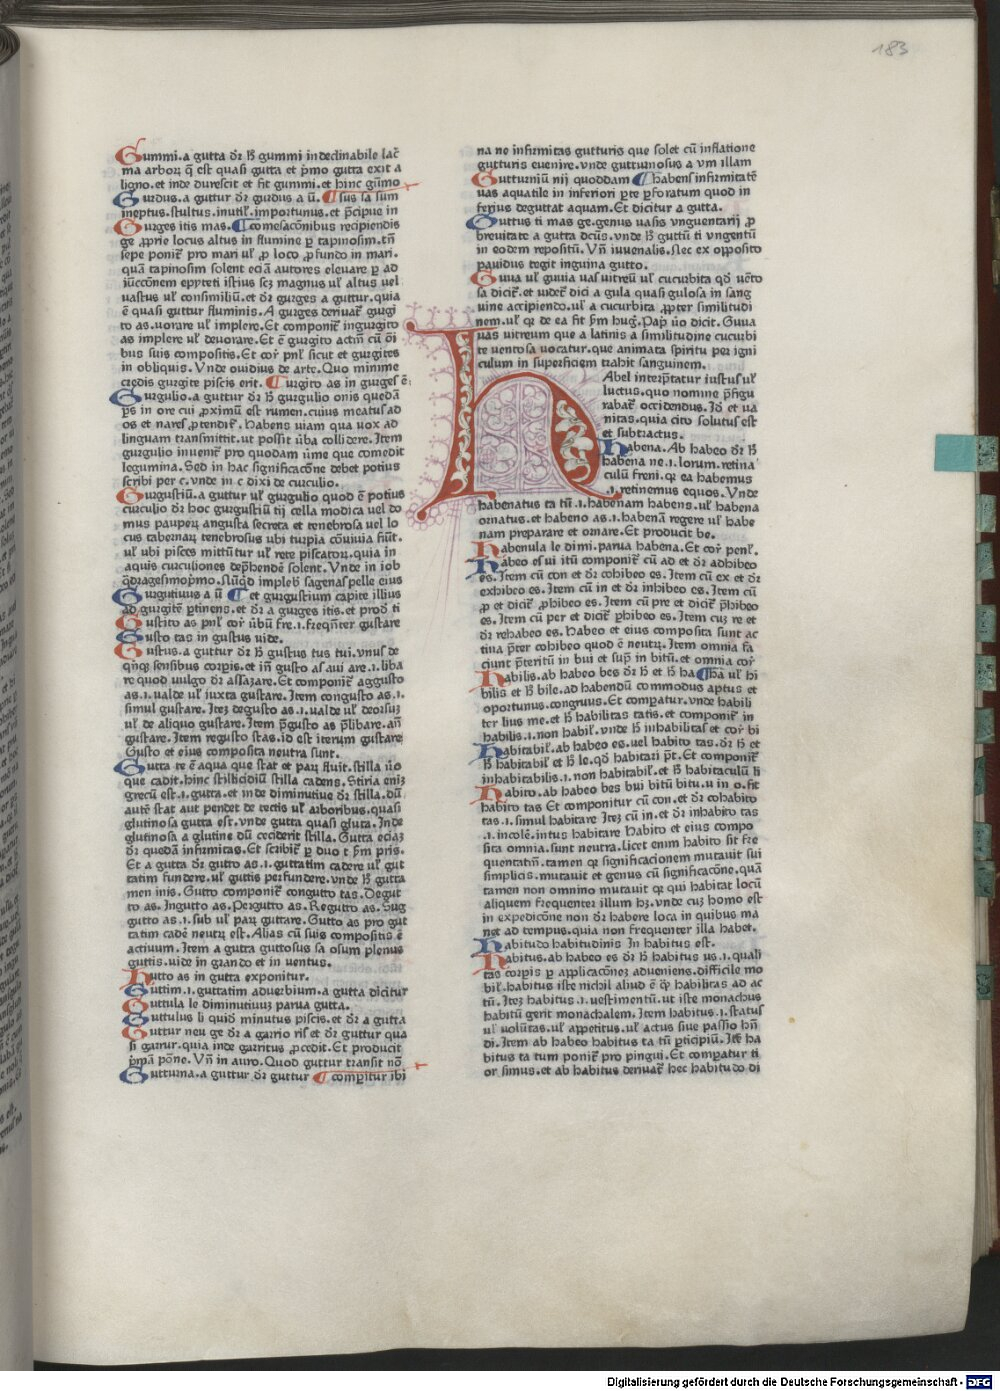 183
Gummi.a gutta dr̄ h̄ gummi indeclinabile lac̄
ma arboꝝ q̄ est quasi gutta et p̄mo gutta exit a
ligno.et inde durescit et fit gummi.et hinc gūmo
Gurdus.a guttur dr̄ gurdus a ū. ¶sus sa sum
ineptus.stultus.inutil̄.importunus.et p̄cipue in
Gurges itis mas. ¶comesac̄onibus recipiendis
ge ꝓprie locus altus in flumine ꝑ tapinosim.tn̄
sepe ponit᷑ pro mari ul̄ ꝓ loco ꝓfundo in mari.
quā tapinosim solent eciā autores eleuare ꝑ ad
iūcc̄onem eppteti istius scꝫ magnus ul̄ altus uel
uastus ul̄ consimiliū.et dr̄ gurges a guttur.quia
ē quasi guttur fluminis.A gurges deriuat᷑ gurgi
to as.uorare ul̄ implere.Et componit᷑ ingurgito
as implere ul̄ deuorare.Et ē gurgito actiū cū oī
bus suis compositis.Et cor̄ pnl̄ sicut et gurgites
in obliquis.Vnde ouidius de arte.Quo minime
credis gurgite piscis erit. ¶urgito as in gurges ē:
Gurgulio.a guttur dr̄ h̄ gurgulio onis quedā
ꝑs in ore cui ꝓximū est rumen.cuius meatus ad
os et nares ꝓtendit᷑.Habens uiam qua uox ad
linguam transmittit.ut possit ūba collidere.Item
gurgulio inuenit᷑ pro quodam ūme que comedit
legumina.Sed in hac significac̄one debet potius
scribi per c.vnde in c dixi de curculio.
Gurgustiū.a guttur ul̄ gurgulio quod ē potius
curculio dr̄ hoc gurgustiū tij cella modica uel do
mus pauperꝝ angusta secreta et tenebrosa uel lo
cus tabernaꝝ tenebrosus ubi turpia cōuiuia fiūt.
ul̄ ubi pisces mittūtur ul̄ rete piscatoꝝ.quia in
aquis curcusiones dep̄hendē solent.Vnde in iob
q̄dragesimop̄mo.nūq̄d implebis sagenas pelle eius
Gurgutiuus a ū ¶et gurgustium capite illius
ad gurgitē ꝑtinens.et dr̄ a gurges itis.et prod̄ ti
Gustito as pnl̄ cor̄ ūbū fre.i.freqn̄ter gustare
Gusto tas in gustus uide.
Gustus.a guttur dr̄ h̄ gustus tus tui.vnus de
qn̄qꝫ sensibus corpis.et in gusto as aui are.i.liba
re quod uulgo dr̄ assazare.Et componit᷑ aggusto
as.i.ualde ul̄ iuxta gustare.Item congusto as.i.
simul gustare.Itēꝫ degusto as.i.ualde ul̄ deorsuꝫ
ul̄ de aliquo gustare.Item p̄gusto as p̄libare.an̄
gustare.Item regusto stas.id est iterum gustare
Gusto et eius composita neutra sunt.
Gutta te ē aqua que stat et paꝝ fluit.stilla ūo
que cadit.hinc stillicidiū stilla cadens.Stiria eniꝫ
grecū est.i.gutta.et inde diminutiue dr̄ stilla.dū
autē stat aut pendet de tectis ul̄ arboribus.quasi
glutinosa gutta est.vnde gutta quasi gluta.Inde
glutinosa a glutine dū ceciderit stilla.Gutta eciaꝫ
dr̄ quedā infirmitas.Et scribit᷑ ꝑ duo t s̄m pris.
Et a gutta dr̄ gutto as.i.guttatim cadere ul̄ gut
tatim fundere.ul̄ guttis perfundere.vnde h̄ gutta
men inis.Gutto componit᷑ congutto tas.Degut
to as.Ingutto as.Pergutto as.Regutto as.Sug
gutto as.i.sub ul̄ paꝝ guttare.Gutto as pro gut
tatim cadē neutꝝ est.Alias cū suis compositis ē
actiuum.Item a gutta guttosus sa osum plenus
guttis.uide in grando et in ventus.
Gutto as in gutta exponitur.
Guttim.i.guttatim aduerbium.a gutta dicitur
Guttula le diminutiuuꝫ parua gutta.
Guttulus li quid̄ minutus piscis.et dr̄ a gutta
Guttur neu ge dr̄ a garrio ris et dr̄ guttur qua
si garrur.quia inde garritus ꝓcedit.Et producit
p̄mā pōne.Vn̄ in auro.Quod guttur transit nō
Gutturna.a guttur dr̄ guttur ¶comp̄itur ibi
na ne infirmitas gutturis que solet cū inflatione
gutturis euenire.vnde gutturnosus a vm illam
Gutturniū nij quoddam ¶habens infirmitatē
uas aquatile in inferiori ꝑte ꝑforatum quod in
ferius deguttat aquam.Et dicitur a gutta.
Guttus ti mas ge.genus uasis vnguentarij ꝓ
breuitate a gutta dc̄us.vnde h̄ guttū ti vngentū
in eodem repositū.Vn̄ iuuenalis.Nec ex opposito
pauidus tegit inguina gutto.
Guua ul̄ guuia uas uitreū ul̄ cucurbita qd̄ uēto
sa dicit᷑.et uidet᷑ dici a gula quasi gulosa in sang
uine accipiendo.ul̄ a cucurbita ꝓpter similitudi
nem.ul̄ qꝛ de ea fit s̄m hug̊.Pap̄ ūo dicit.Guua
uas uitreum que a latinis a similitudine cucurbi
te uentosa uocatur.que animata spiritu per igni
culum in superficiem trahit sanguinem.
HAbel interp̄tatur iustus ul̄
luctus.quo nomine p̄figu
rabat᷑ occidendus.Id̄ et ua
nitas.quia cito solutus est
et subtractus.
Habena.Ab habeo dr̄ h̄
habena ne.i.lorum.retina
culū freni.qꝛ ea habemus
.i.retinemus equos.Vnde
habenatus ta tū.i.habenam habens.ul̄ habena
ornatus.et habeno as.i.habenā regere ul̄ habe
nam preparare et ornare.Et producit be.
Habenula le dimi.parua habena.Et cor̄ penl̄.
Habeo es ui itū componit᷑ cū ad et dr̄ adhibeo
es.Item cū con et dr̄ cohibeo es.Item cū ex et dr̄
exhibeo es.Item cū in et dr̄ inhibeo es.Item cū
ꝓ et dicit᷑ ꝓhibeo es.Item cū pre et dicit᷑ p̄hibeo
es.Item cū per et dicit᷑ ꝑhibeo es.Item cuꝫ re et
dr̄ rehabeo es.Habeo et eius composita sunt ac
tiua p̄ter cohibeo quod ē neutꝝ.Item omnia fa
ciunt p̄teritū in bui et sup̄ in bitū.et omnia cor̄
Habilis.ab habeo bes dr̄ h̄ et h̄ ha ¶ha ul̄ hi
bilis et h̄ bile.ad habendū commodus aptus et
oportunus.congruus.Et comp̄atur.vnde habili
ter lius me.et h̄ habilitas tatis.et componit᷑ in
habilis.i.non habil̄.vnde h̄ inhabilitas et cor̄ bi
Habitabil̄.ab habeo es.uel habito tas.dr̄ h̄ et
h̄ habitabil̄ et h̄ le.qd̄ habitari pt̄.Et componit᷑
inhabitabilis.i.non habitabil̄.et h̄ habitaculū li
Habito.ab habeo bes bui bitū bitu.u in o.fit
habito tas Et componitur cū con.et dr̄ cohabito
tas.i.simul habitare Iteꝫ cū in.et dr̄ inhabito tas
.i.incolē.intus habitare Habito et eius compo
sita omnia.sunt neutra.licet enim habito sit fre
quentatiū.tamen qꝛ significacionem mutauit sui
simplicis.mutauit et genus cū significac̄one.quā
tamen non omnino mutauit qꝛ qui habitat locū
aliquem frequenter illum hꝫ.vnde cuꝫ homo est
in expedic̄one non dr̄ habere loca in quibus ma
net ad tempus.quia non frequenter illa habet.
Habitudo habitudinis In habitus est.
Habitus.ab habeo es dr̄ h̄ habitus us.i.quali
tas corpis ꝑ applicac̄oneꝫ adueniens.difficile mo
bil̄.habitus iste nichil aliud ē q̄ꝫ habilitas ad ac
tū.Iteꝫ habitus.i.uestimentū.ut iste monachus
habitū gerit monachalem.Item habitus.i.status
ul̄ uolūtas.ul̄ appetitus.ul̄ actus siue passio hn̄
di.Item ab habeo habitus ta tū ꝑticipiū.Itē ha
bitus ta tum ponit᷑ pro pingui.Et comp̄atur ti
or simus.et ab habitus deriuat᷑ hec habitudo di
Digitalisierung gefördert durch die Deutsche Forschungsgemeinschaft - DFG